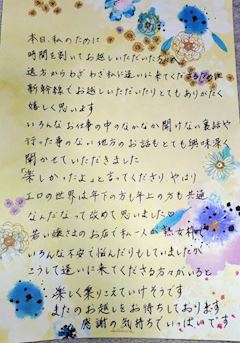 本日、私のために
時間を割いてお越しいただいた
遠方からわざわざ私に逢いに来てくださるため
新幹線でお越しいただいたりとてもありがたく
嬉しく思います
いろんなお仕事の中のなかなか聞けない裏話や
行った事のない地方のお話もとても興味深く
聞かせていただきました
「楽しかったよ」と言ってくださり やはり
エロの世界は年下の方も年上の方も共通
なんだなって改めて思いました♡
若い嬢さまのお店で私一人が熟女枠
いろんな不安で悩んだりもしていましたが
こうして逢いに来てくださる方々がいると
楽しく乗りこえていけそうです
またのお越しをお待ちしております
感謝の気持ちでいっぱいです